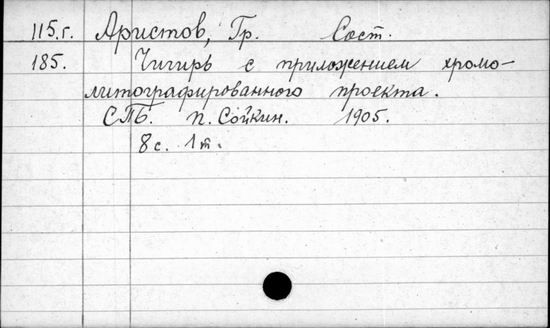 115.г. Аристов, Гр. Сост.
185. Чигирь с приложением хромо-
литографированного проекта.
СПБ. п. Сойкин. 1905.
8 с. 1 т.